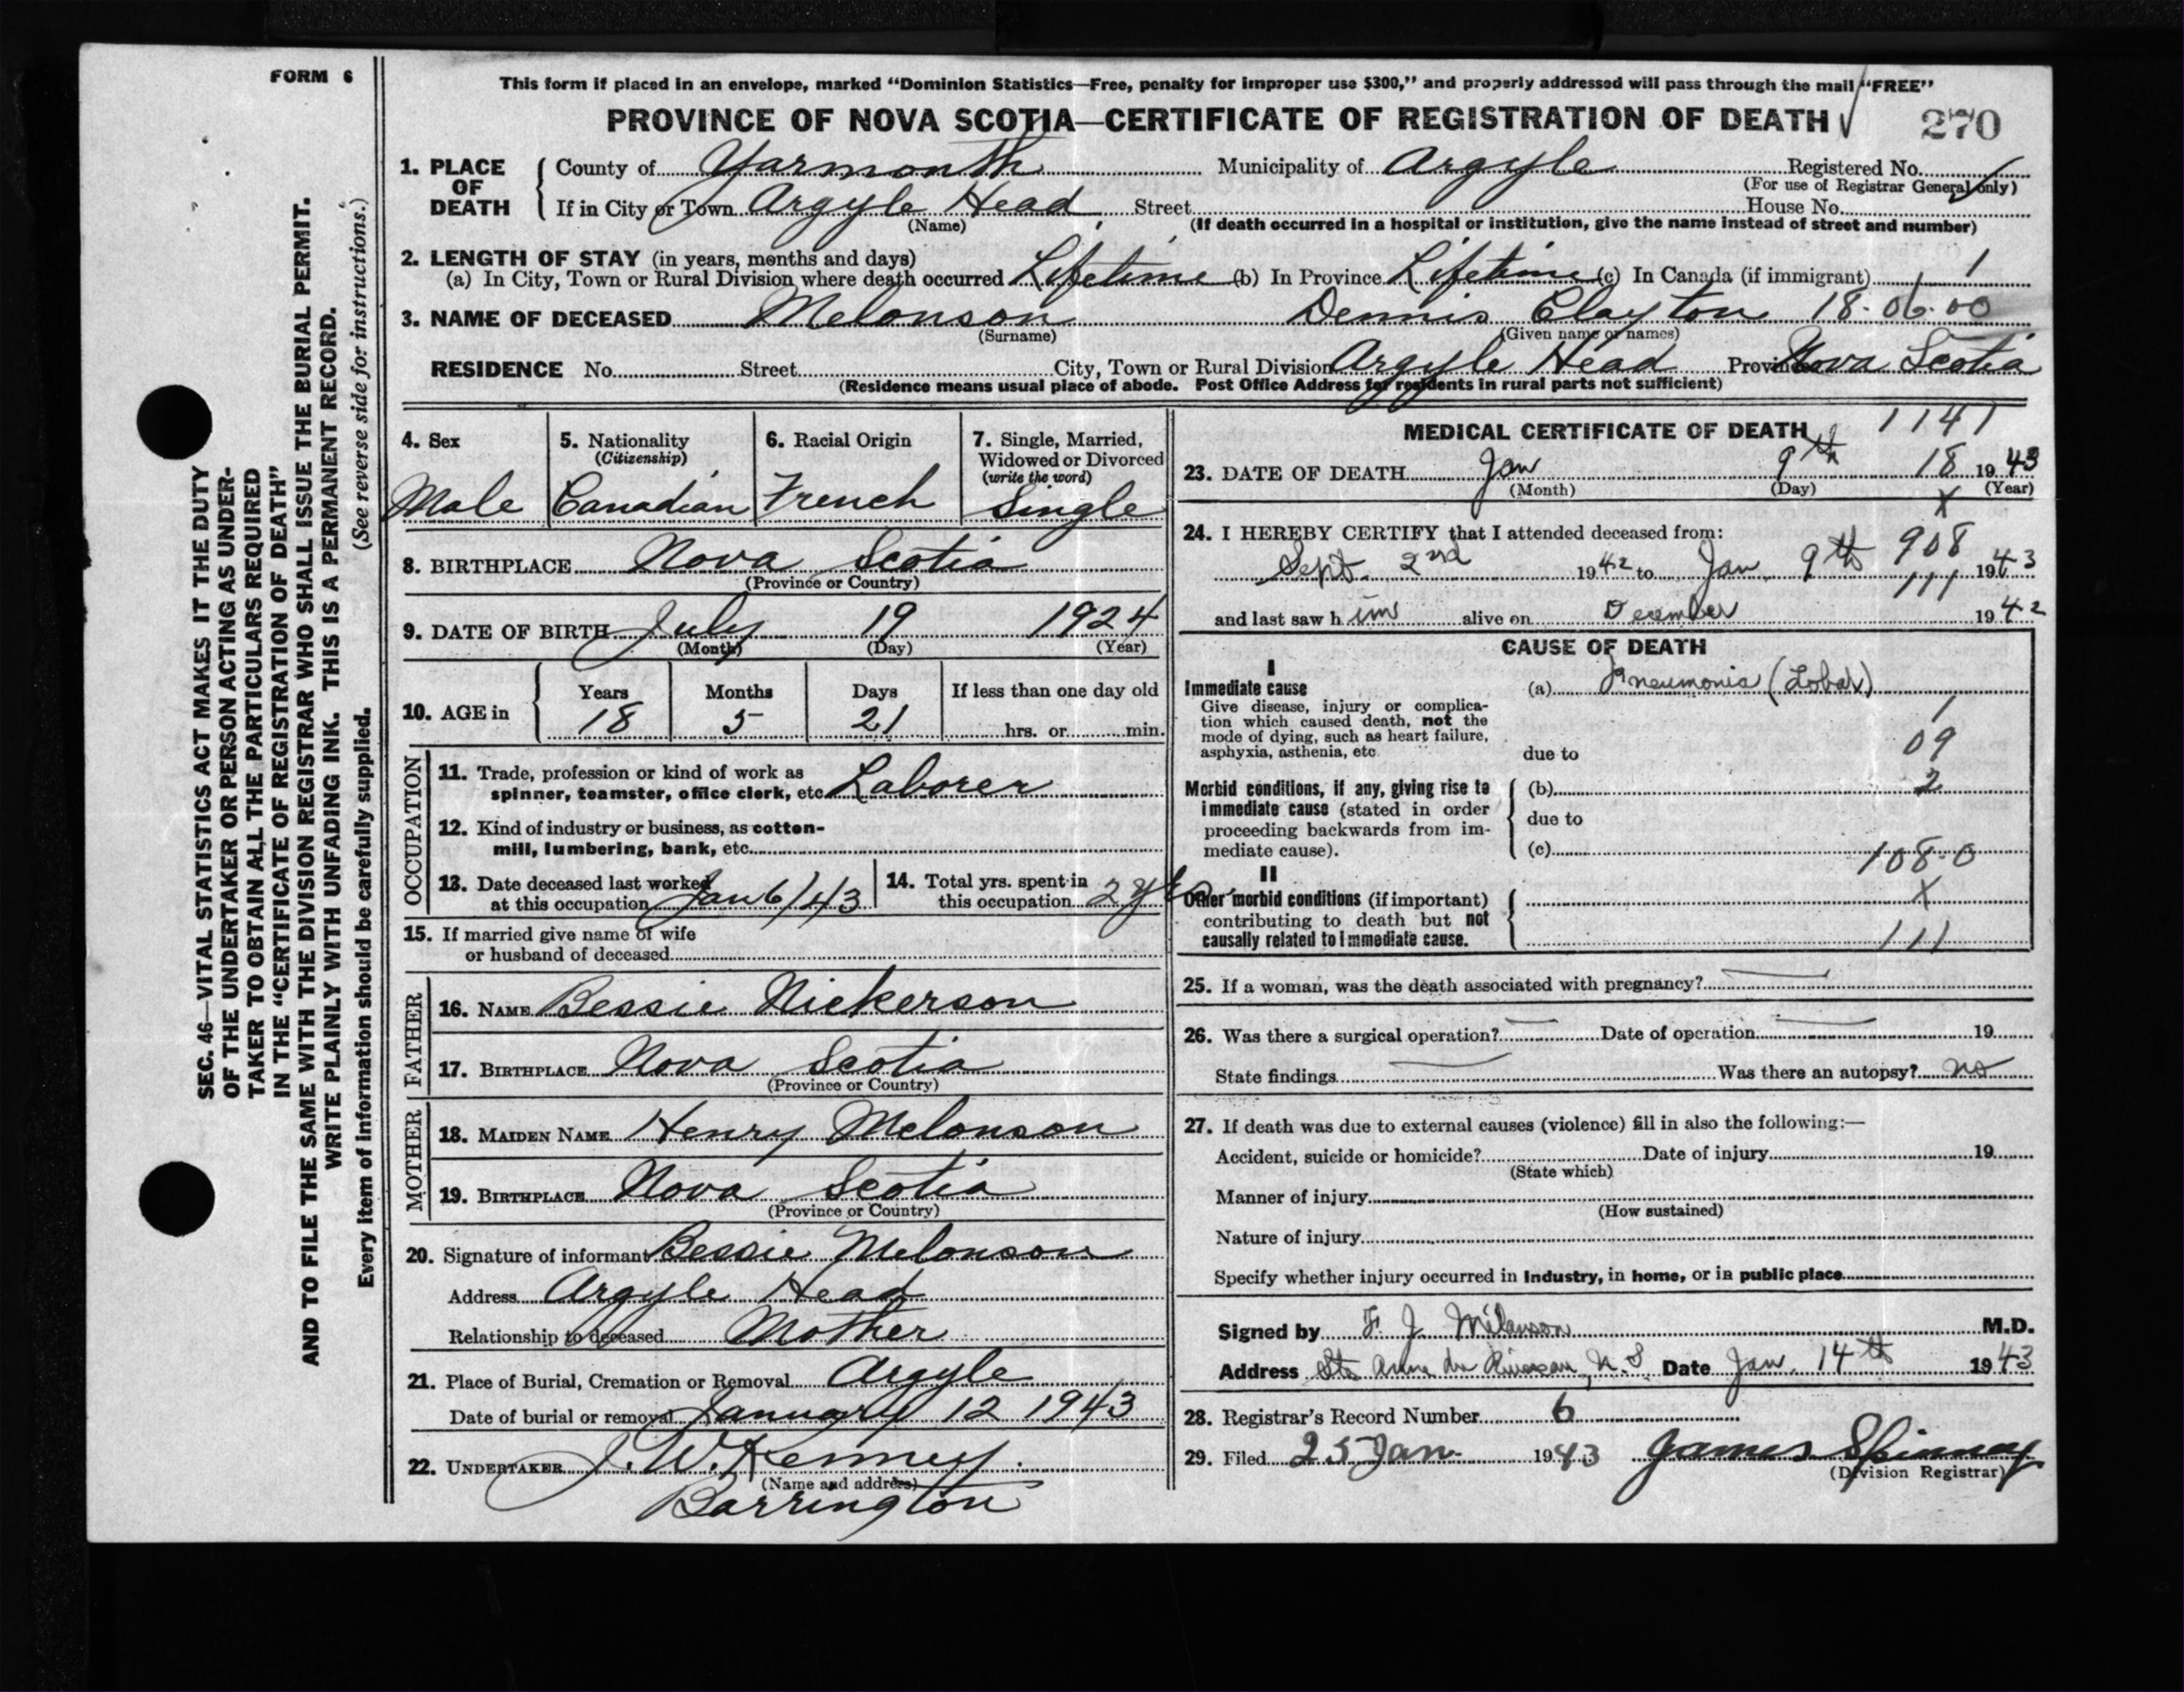 FORM 6
This form if placed in an envelope, marked "Dominion Statistics—Free, penalty for improper use $300," and properly addressed will pass through the mail "FREE"
PROVINCE OF NOVA SCOTIA—CERTIFICATE OF REGISTRATION OF DEATH 270
1. PLACE OF DEATH County of Yarmouth Municipality of Argyle Registered No.
(For use of Registrar General only)
If in City or Town Argyle Head Street House No.
(Name) (If death occurred in a hospital or institution, give the name instead of street and number)
2. LENGTH OF STAY (in years, months and days)
(a) In City, Town or Rural Division where death occurred Lifetime (b) In Province Lifetime (c) In Canada (if immigrant) 1
3. NAME OF DECEASED Melonson Dennis Clayton 18-06-00
(Surname) (Given name or names)
RESIDENCE No. Street City, Town or Rural Division Argyle Head Province Nova Scotia
(Residence means usual place of abode. Post Office Address for residents in rural parts not sufficient)
4. Sex 5. Nationality (Citizenship) 6. Racial Origin 7. Single, Married, Widowed or Divorced (write the word)
Male Canadian French Single
8. BIRTHPLACE Nova Scotia
(Province or Country)
9. DATE OF BIRTH July 19 1924
(Month) (Day) (Year)
10. AGE in Years Months Days If less than one day old
18 5 21 hrs. or min.
OCCUPATION
11. Trade, profession or kind of work as
spinner, teamster, office clerk, etc. Laborer
12. Kind of industry or business, as cotton-
mill, lumbering, bank, etc.
13. Date deceased last worked
at this occupation Jan 6/43
14. Total yrs. spent in
this occupation 2 yrs
15. If married give name of wife
or husband of deceased
FATHER
16. NAME Bessie Nickerson
17. BIRTHPLACE Nova Scotia
(Province or Country)
MOTHER
18. MAIDEN NAME Henry Melonson
19. BIRTHPLACE Nova Scotia
(Province or Country)
20. Signature of informant Bessie Melonson
Address Argyle Head
Relationship to deceased Mother
21. Place of Burial, Cremation or Removal Argyle
Date of burial or removal January 12 1943
22. UNDERTAKER J. W. Kenney
(Name and address)
Barrington
MEDICAL CERTIFICATE OF DEATH 1141
23. DATE OF DEATH Jan 9th 18 1943
(Month) (Day) (Year)
X
24. I HEREBY CERTIFY that I attended deceased from:
908
Sept. 2nd 1942 to Jan 9th 1943
111
and last saw him alive on December 1942
CAUSE OF DEATH
I
Immediate cause (a) Pneumonia (Lobar)
Give disease, injury or complica-
tion which caused death, not the
mode of dying, such as heart failure,
asphyxia, asthenia, etc.
1
due to 09
Morbid conditions, if any, giving rise to (b) 2
immediate cause (stated in order
proceeding backwards from im-
mediate cause).
due to
(c) 108-0
II
Other morbid conditions (if important) X
contributing to death but not
causally related to immediate cause. 111
25. If a woman, was the death associated with pregnancy? —
26. Was there a surgical operation? — Date of operation — 19
State findings — Was there an autopsy? no
27. If death was due to external causes (violence) fill in also the following:—
Accident, suicide or homicide? Date of injury 19
(State which)
Manner of injury
(How sustained)
Nature of injury
Specify whether injury occurred in industry, in home, or in public place
Signed by F. J. Melanson M.D.
Address Ste Anne du Ruisseau, N.S. Date Jan. 14th 1943
28. Registrar's Record Number 6
29. Filed 25 Jan 1943 James Spinney
(Division Registrar)
SEC. 46—VITAL STATISTICS ACT MAKES IT THE DUTY
OF THE UNDERTAKER OR PERSON ACTING AS UNDER-
TAKER TO OBTAIN ALL THE PARTICULARS REQUIRED
IN THE "CERTIFICATE OF REGISTRATION OF DEATH"
AND TO FILE THE SAME WITH THE DIVISION REGISTRAR WHO SHALL ISSUE THE BURIAL PERMIT.
WRITE PLAINLY WITH UNFADING INK. THIS IS A PERMANENT RECORD.
Every item of information should be carefully supplied. (See reverse side for instructions.)